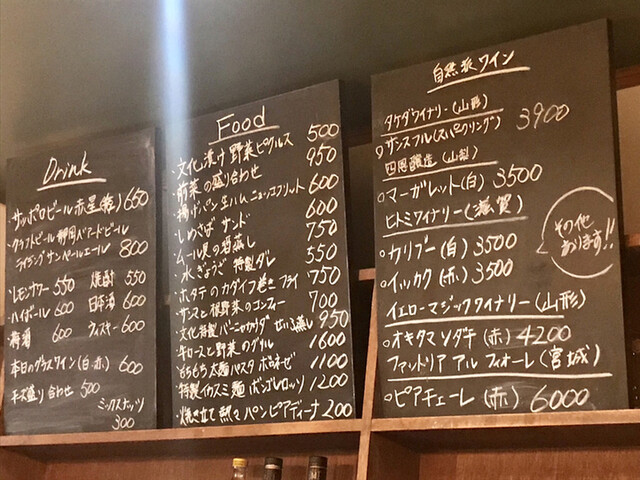 Drink
サッポロビール赤星(瓶) 650
クラフトビール 静岡ベアードビール
ライジングサンペールエール 800
レモンサワー 550 焼酎 550
ハイボール 600 日本酒 600
梅酒 600 ウィスキー 600
本日のグラスワイン(白・赤) 600
チーズ盛り合わせ 500
ミックスナッツ
300
Food
・文化漬け 野菜ピクルス 500
・前菜の盛り合わせ 950
・揚げパン 生ハム ニョッコフリット 600
・しめさば サンド 600
・ムール貝の酒蒸し 750
・水ぎょうざ 特製ダレ 550
・ホタテのカダイフ巻き フライ 750
・サンマと根野菜のコンフィー 700
・文化特製 バーニャカウダ せいろ蒸し 950
・牛ロースと野菜のグリル 1600
・もちもち太麺パスタ ボロネーゼ 1100
・特製イカスミ麺 ボンゴレロッソ 1200
・焼き立て 熱々パン ピアディーナ 200
自然派ワイン
タケダワイナリー(山形)
○サンスフル(スパークリング) 3900
四恩醸造(山梨)
○マーガレット(白) 3500
ヒトミワイナリー(滋賀)
○カリブー(白) 3500
○イッカク(赤) 3500
その他
あります!!
イエローマジックワイナリー(山形)
○オキタマソダチ(赤) 4200
ファットリア アル フィオーレ(宮城)
○ピアチェーレ(赤) 6000